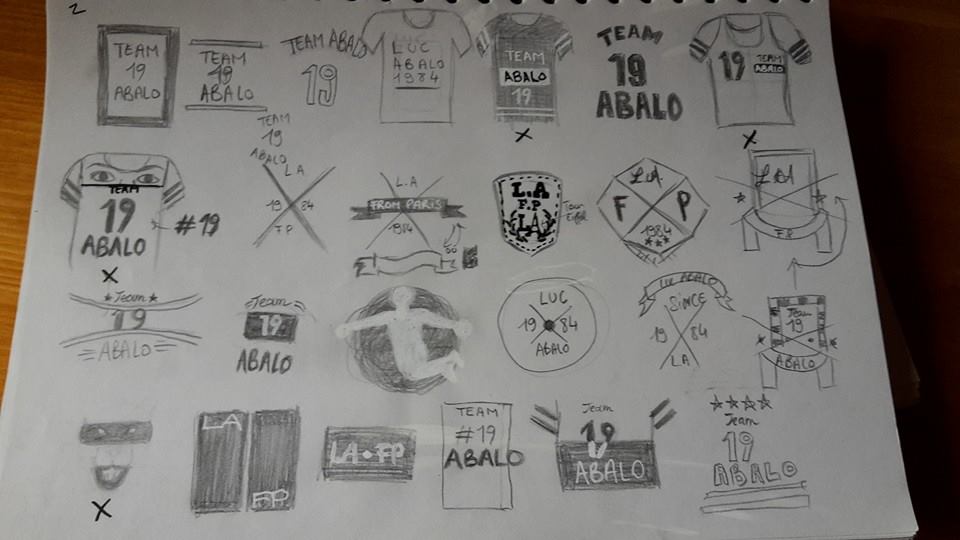 2
TEAM
19
ABALO
TEAM
19
ABALO
TEAM ABALO
19
LUC
ABALO
1984
TEAM
ABALO
19
TEAM
19
ABALO
19
TEAM
ABALO
TEAM
19
ABALO
TEAM
19
ABALO
#19
L A
19 84
F P
L.A
FROM PARIS
1984
L.A
F.P
LA
Tour
Eiffel
L.A
F P
1984
LA
F.P
Team
19
ABALO
Team
19
ABALO
LUC
19 84
ABALO
LUC ABALO
SINCE
19 84
LA
Team
19
ABALO
LA
FP
LA•FP
TEAM
#19
ABALO
Team
19
ABALO
Team
19
ABALO